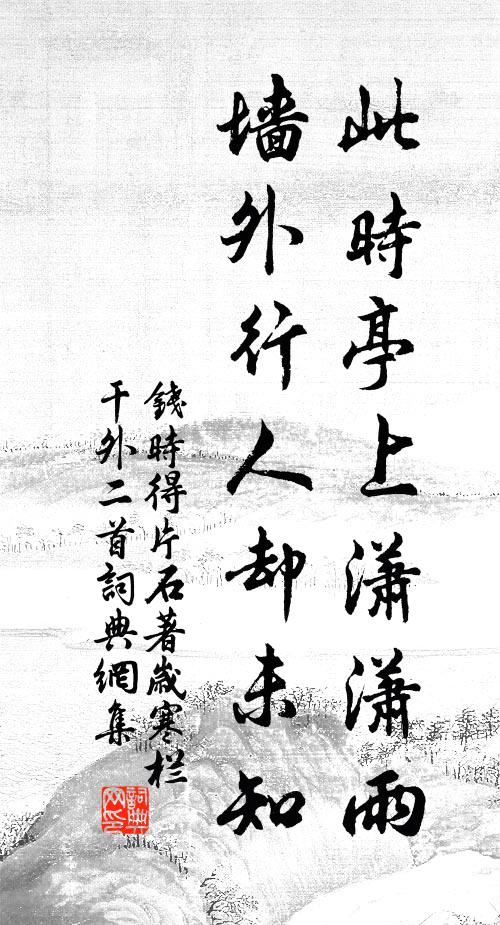 此時亭上瀟瀟雨
墻外行人却未知
錢時得片石著歲寒栏
干外二首詞典網集